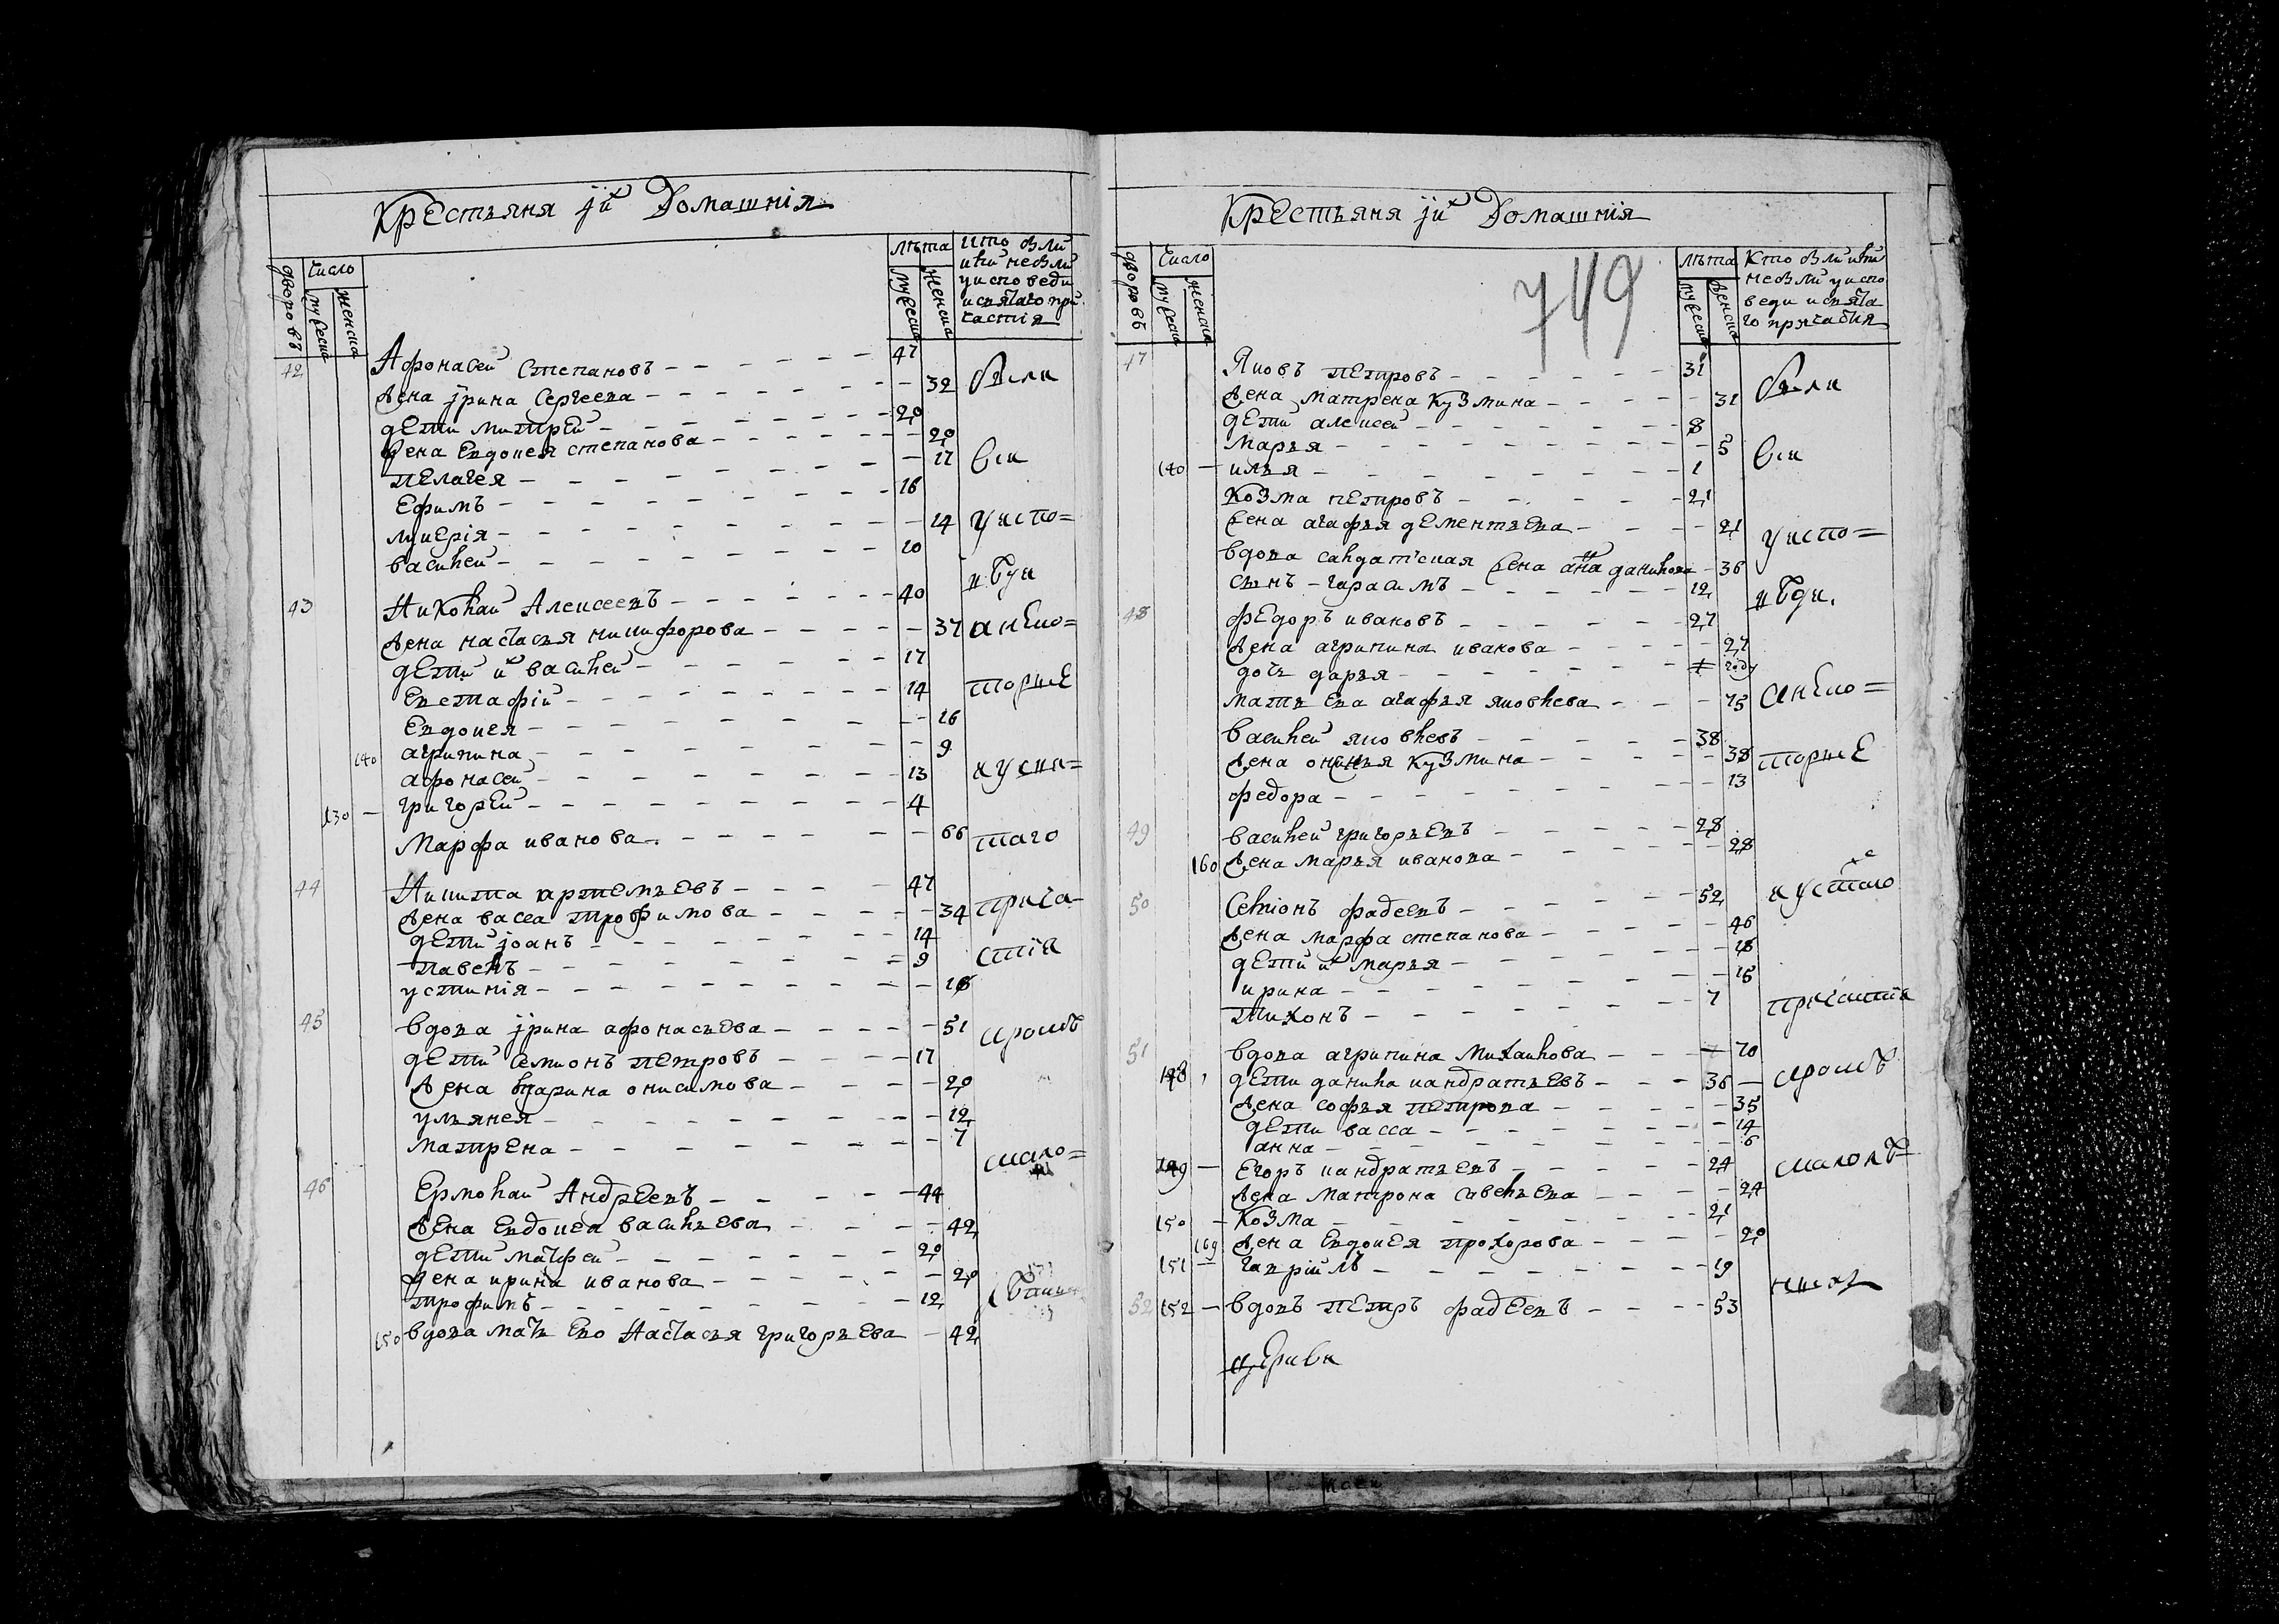 Крестьяня их Домашнія
дворовъ
число
мужеска
женска
лѣта
мужеска
женска
Кто были
или не были
у исповеди
и святаго при
частія
42 Афонасей Степановъ 47
Жена ірина Сергеева 32
дети митрей 20
Жена Евдокея степанова 20
пелагея 17
Ефимъ 16
лукерія 14
василей 10
43 Николай Алексеевъ 40
Жена настасья никифорова 37
дети их василей 17
Евстафій 14
Евдокея 16
140 агрипина 9
афонасей 13
130 григорей 4
Марфа иванова 66
44 Никита артемьевъ 47
Жена васса трофимова 34
дети іоанъ 14
павелъ 9
устинія 16
45 вдова ірина афонасьева 51
дети Семионъ петровъ 17
Жена марина онисимова 20
ульянея 12
матрена 7
46 Ермолай Андреевъ 44
Жена Евдокея васильева 42
дети матфей 20
Жена ирина иванова 20
трофимъ 12
150 вдова мать Ево Настасья григорьева 42
были
вси
у испо=
и буи
ан ено=
торже
и у свя=
таго
прича-
стія
кроме
мало=
Крестьяня их Домашнія
749
дворовъ
число
мужеска
женска
лѣта
мужеска
женска
Кто были или
не были у испо
веди и свята
го причастия
47 Яковъ петровъ 31
Жена матрена кузмина 31
дети алексей 8
марья 5
140 илья 1
козма петровъ 21
Жена агафья дементьева 21
вдова салдатская жена анна данилова 36
сынъ гарасимъ 12
48 федоръ ивановъ 27
Жена агрипина иванова 27
дочь дарья 1 году
мать Ева агафья яковлева 75
василей яковлевъ 38
Жена кузмина 38
федора 13
49 василей григорьевъ 28
160 Жена марья иванова 28
50 Семионъ фадеевъ 52
Жена марфа степанова 46
дети их марья 18
ирина 16
тихонъ 7
51 вдова агрипина михаилова 70
148 дети данила кандратьевъ 36
Жена софья петрова 35
дети васса 14
анна 6
149 Егоръ кандратьевъ 24
Жена матрона савельева 24
150 козма 21
169 Жена Евдокея прохорова 20
151 гавріилъ 19
52 152 вдовъ петръ фадеевъ 53
церкви
были
вси
у испо=
торже
и у стаго
причастія
кроме
малолѣ